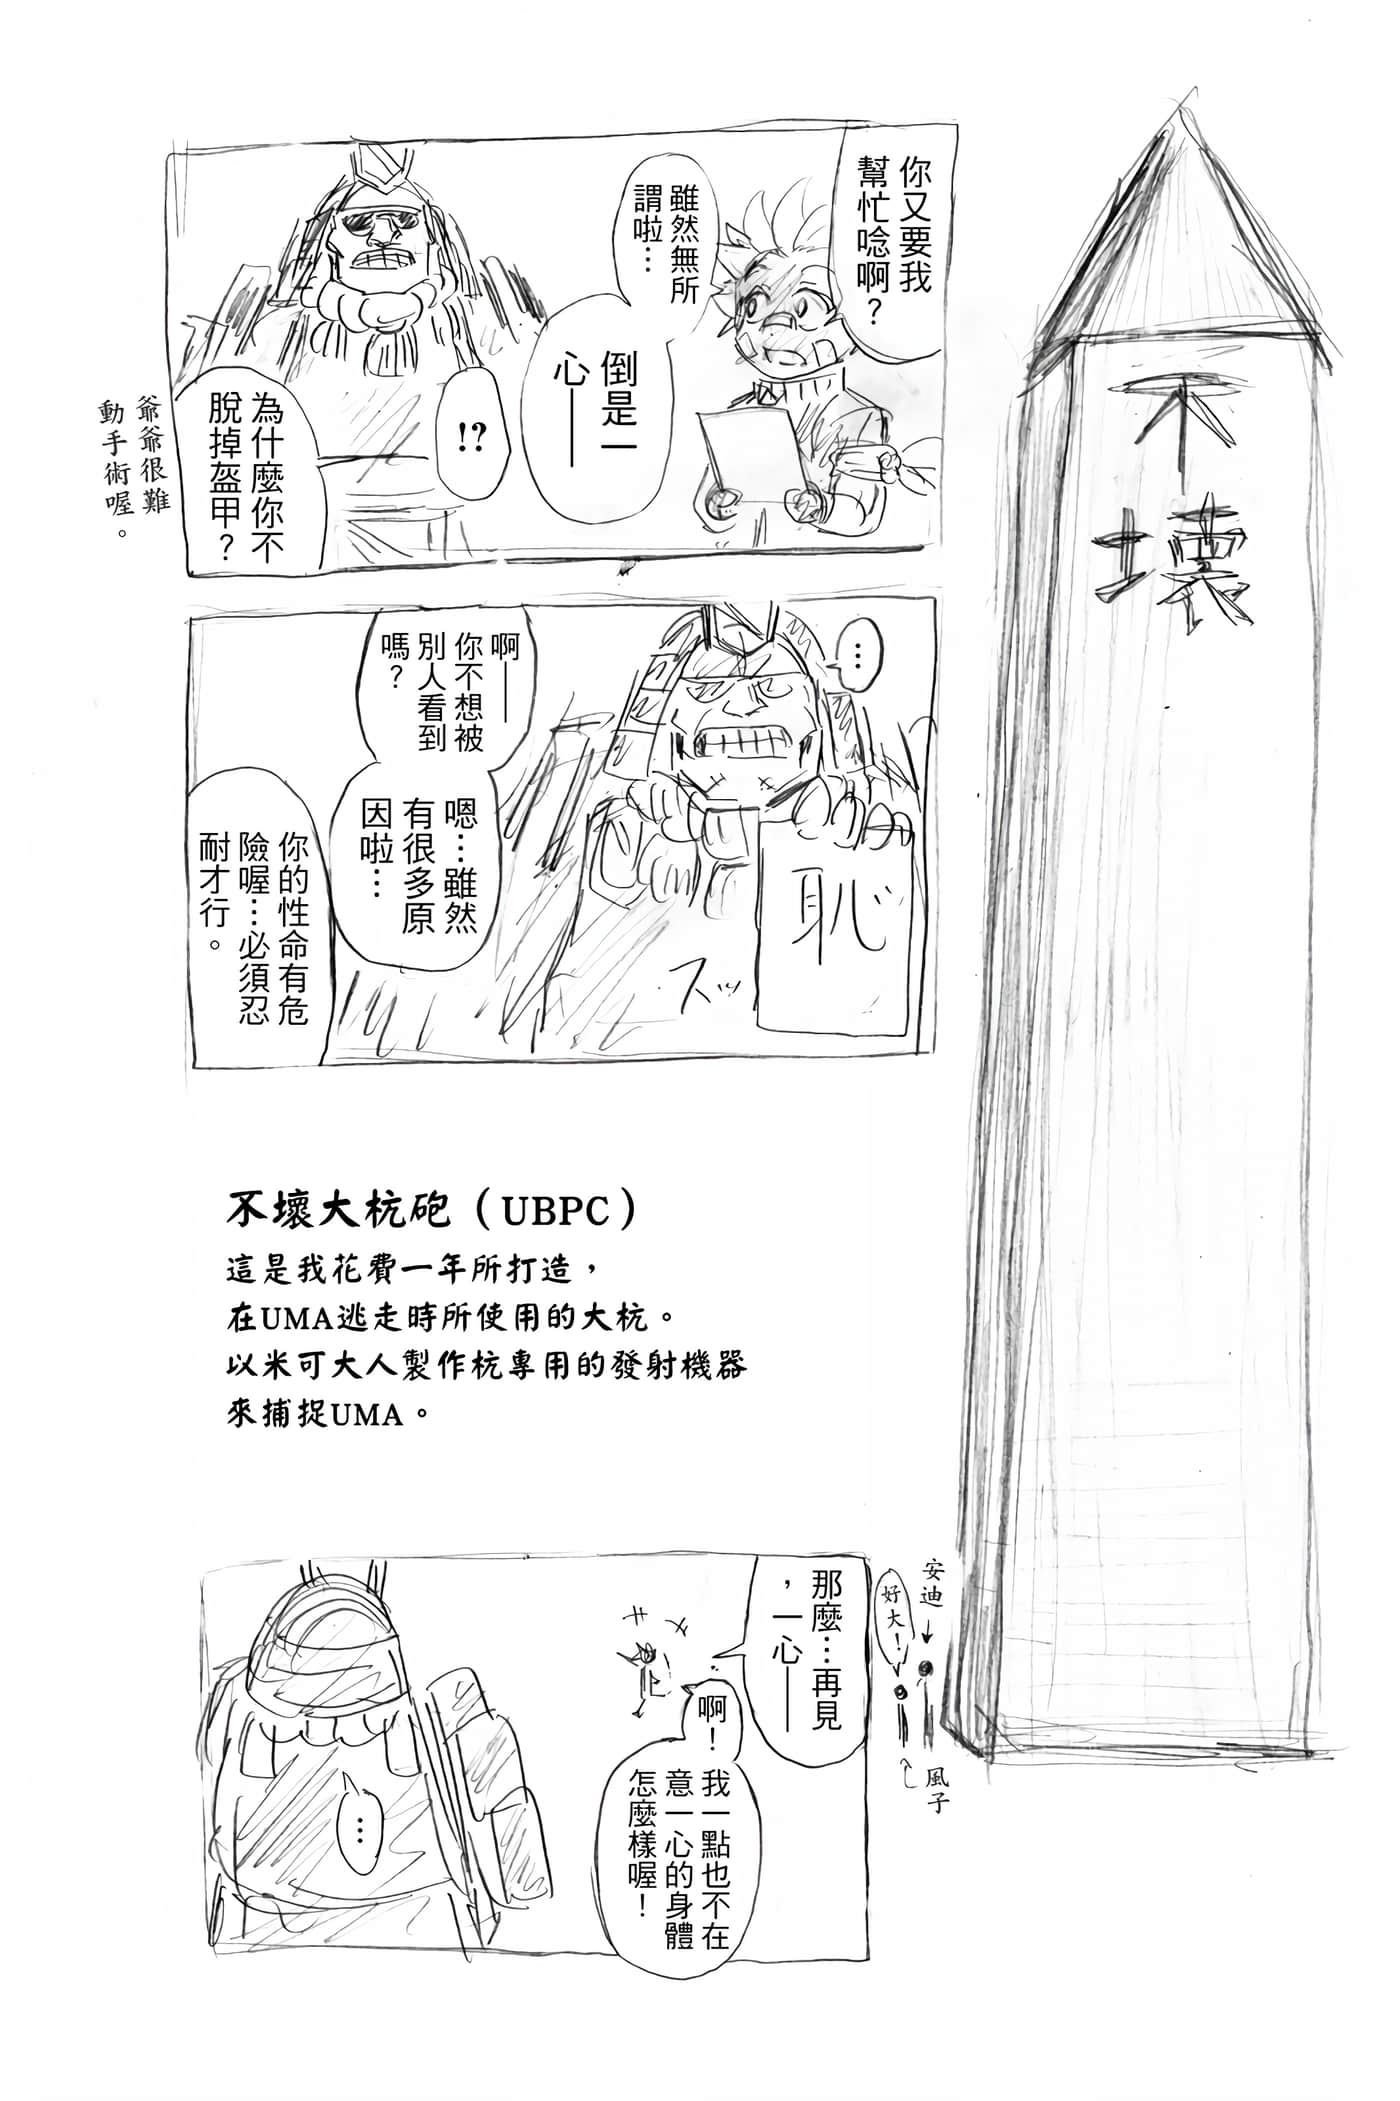 不
壞
你又要我
幫忙唸啊？
雖然無所
謂啦⋯
倒是一
心——
!?
為什麼你不
脫掉盔甲？
爺爺很難
動手術喔。
⋯
啊——
你不想被
別人看到
嗎？
嗯⋯雖然
有很多原
因啦⋯
恥
スッ
你的性命有危
險喔⋯必須忍
耐才行。
不壞大杭砲（UBPC）
這是我花費一年所打造，
在UMA逃走時所使用的大杭。
以米可大人製作杭專用的發射機器
來捕捉UMA。
安迪
好大！
風子
那麼⋯再見
，一心——
啊！
我一點也不在
意一心的身體
怎麼樣喔！
⋯